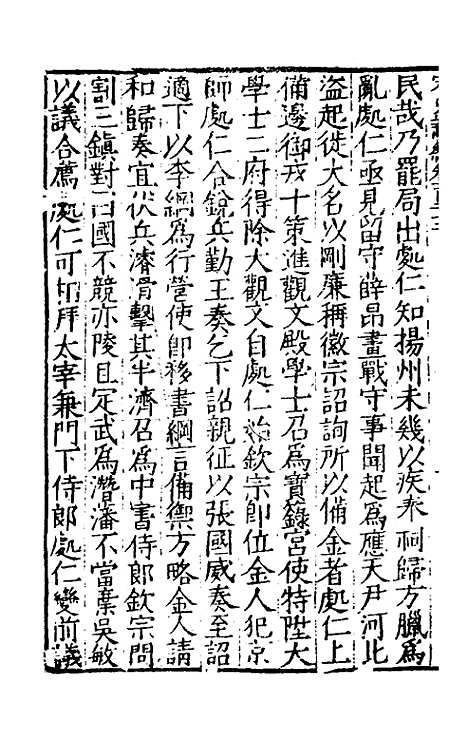 民哉乃罷局出處仁知揚州未幾以疾奉祠歸方臘為
亂處仁亟見留守薛昂畫戰守事聞起為應天尹河北
盜起徙大名以剛廉稱徽宗詔詢所以備金者處仁上
備邊御戎十策進觀文殿學士召為寶籙宮使特陞大
學士二府得除大觀文自處仁始欽宗即位金人犯京
師處仁合銳兵勤王奏乞下詔親征以張國威奏至詔
適下以李綱為行營使即移書綱言備禦方略金人請
和歸奏宜伏兵濬滑擊其半濟召為中書侍郎欽宗問
割三鎮對曰國不競亦陵且定武為潛藩不當棄吳敏
以議合薦處仁可相拜太宰兼門下侍郎處仁變前議